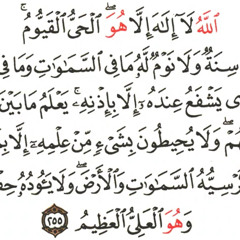 اللَّهُ لَآ إِلَٰهَ إِلَّا هُوَ ۖ الْحَىُّ الْقَيُّومُ ۚ
سِنَةٌ وَلَا نَوْمٌ ۚ لَّهُۥ مَا فِى السَّمَٰوَٰتِ وَمَا فِى
يَشْفَعُ عِندَهُۥٓ إِلَّا بِإِذْنِهِۦ ۚ يَعْلَمُ مَا بَيْنَ
وَلَا يُحِيطُونَ بِشَىْءٍ مِّنْ عِلْمِهِۦٓ إِلَّا
السَّمَٰوَٰتِ وَالْأَرْضَ ۖ وَلَا يَـُٔودُهُۥ
وَهُوَ الْعَلِىُّ الْعَظِيمُ ٢٥٥